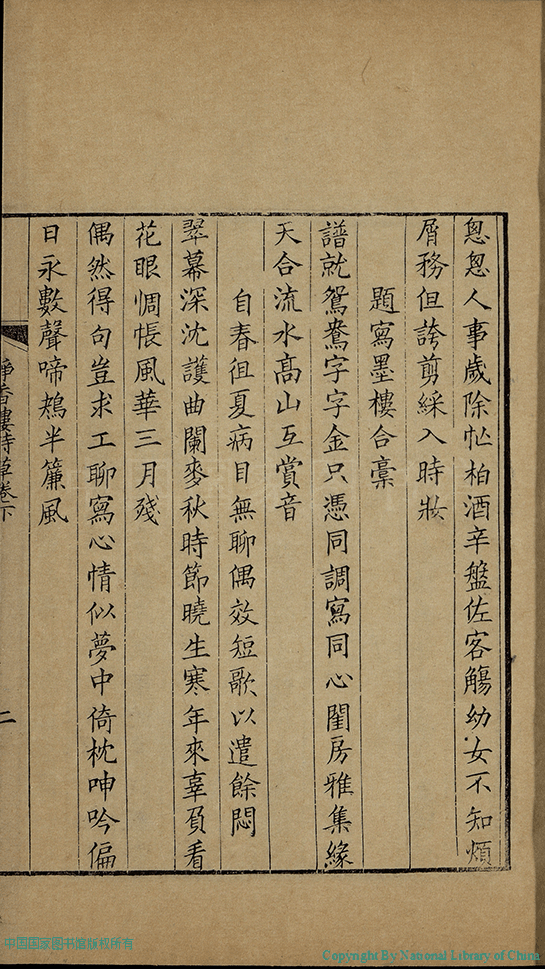 悤悤人事歲除忙柏酒辛盤佐客觴幼女不知煩
屑務但誇剪綵入時妝
題寫墨樓合稾
譜就鴛鴦字字金只憑同調寫同心閨房雅集緣
天合流水高山互賞音
自春徂夏病目無聊偶效短歌以遣餘悶
翠幕深沈護曲闌麥秋時節曉生寒年來辜負看
花眼惆悵風華三月殘
偶然得句豈求工聊寫心情似夢中倚枕呻吟偏
日永數聲啼鴂半簾風
靜香樓詩草卷下
二
中国国家图书馆版权所有
Copyright By National Library of China